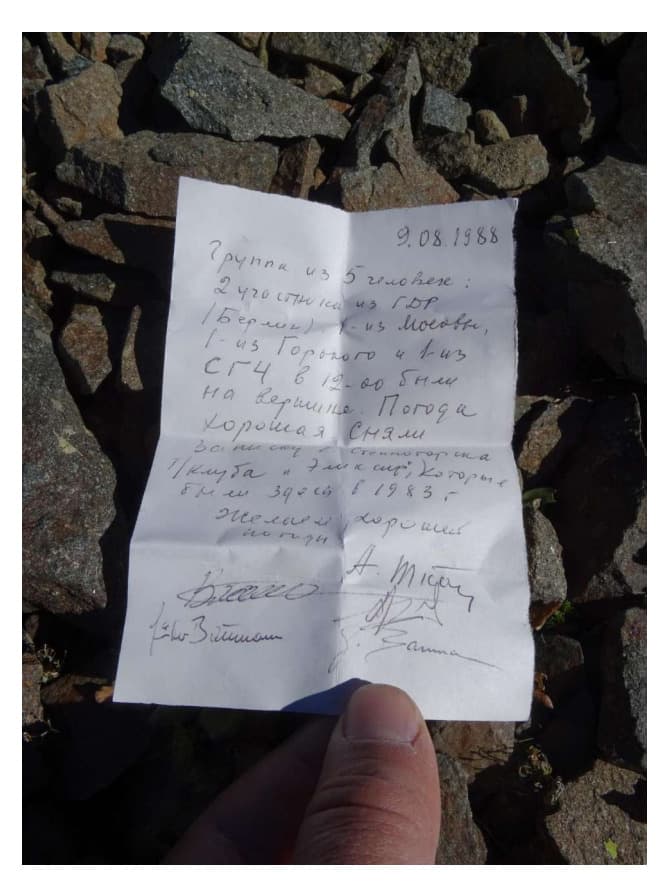 9.08.1988
Группа из 5 человек:
2 участника из ГДР
(Берлин) 1-из Москвы,
1-из Горького и 1-из
СГЧ в 12-00 были
на вершине. Погода
хорошая Сняли
записку
т/клуба "Эликсир", которые
были здесь в 1983 г
Желаем хорошей
погоды
А.